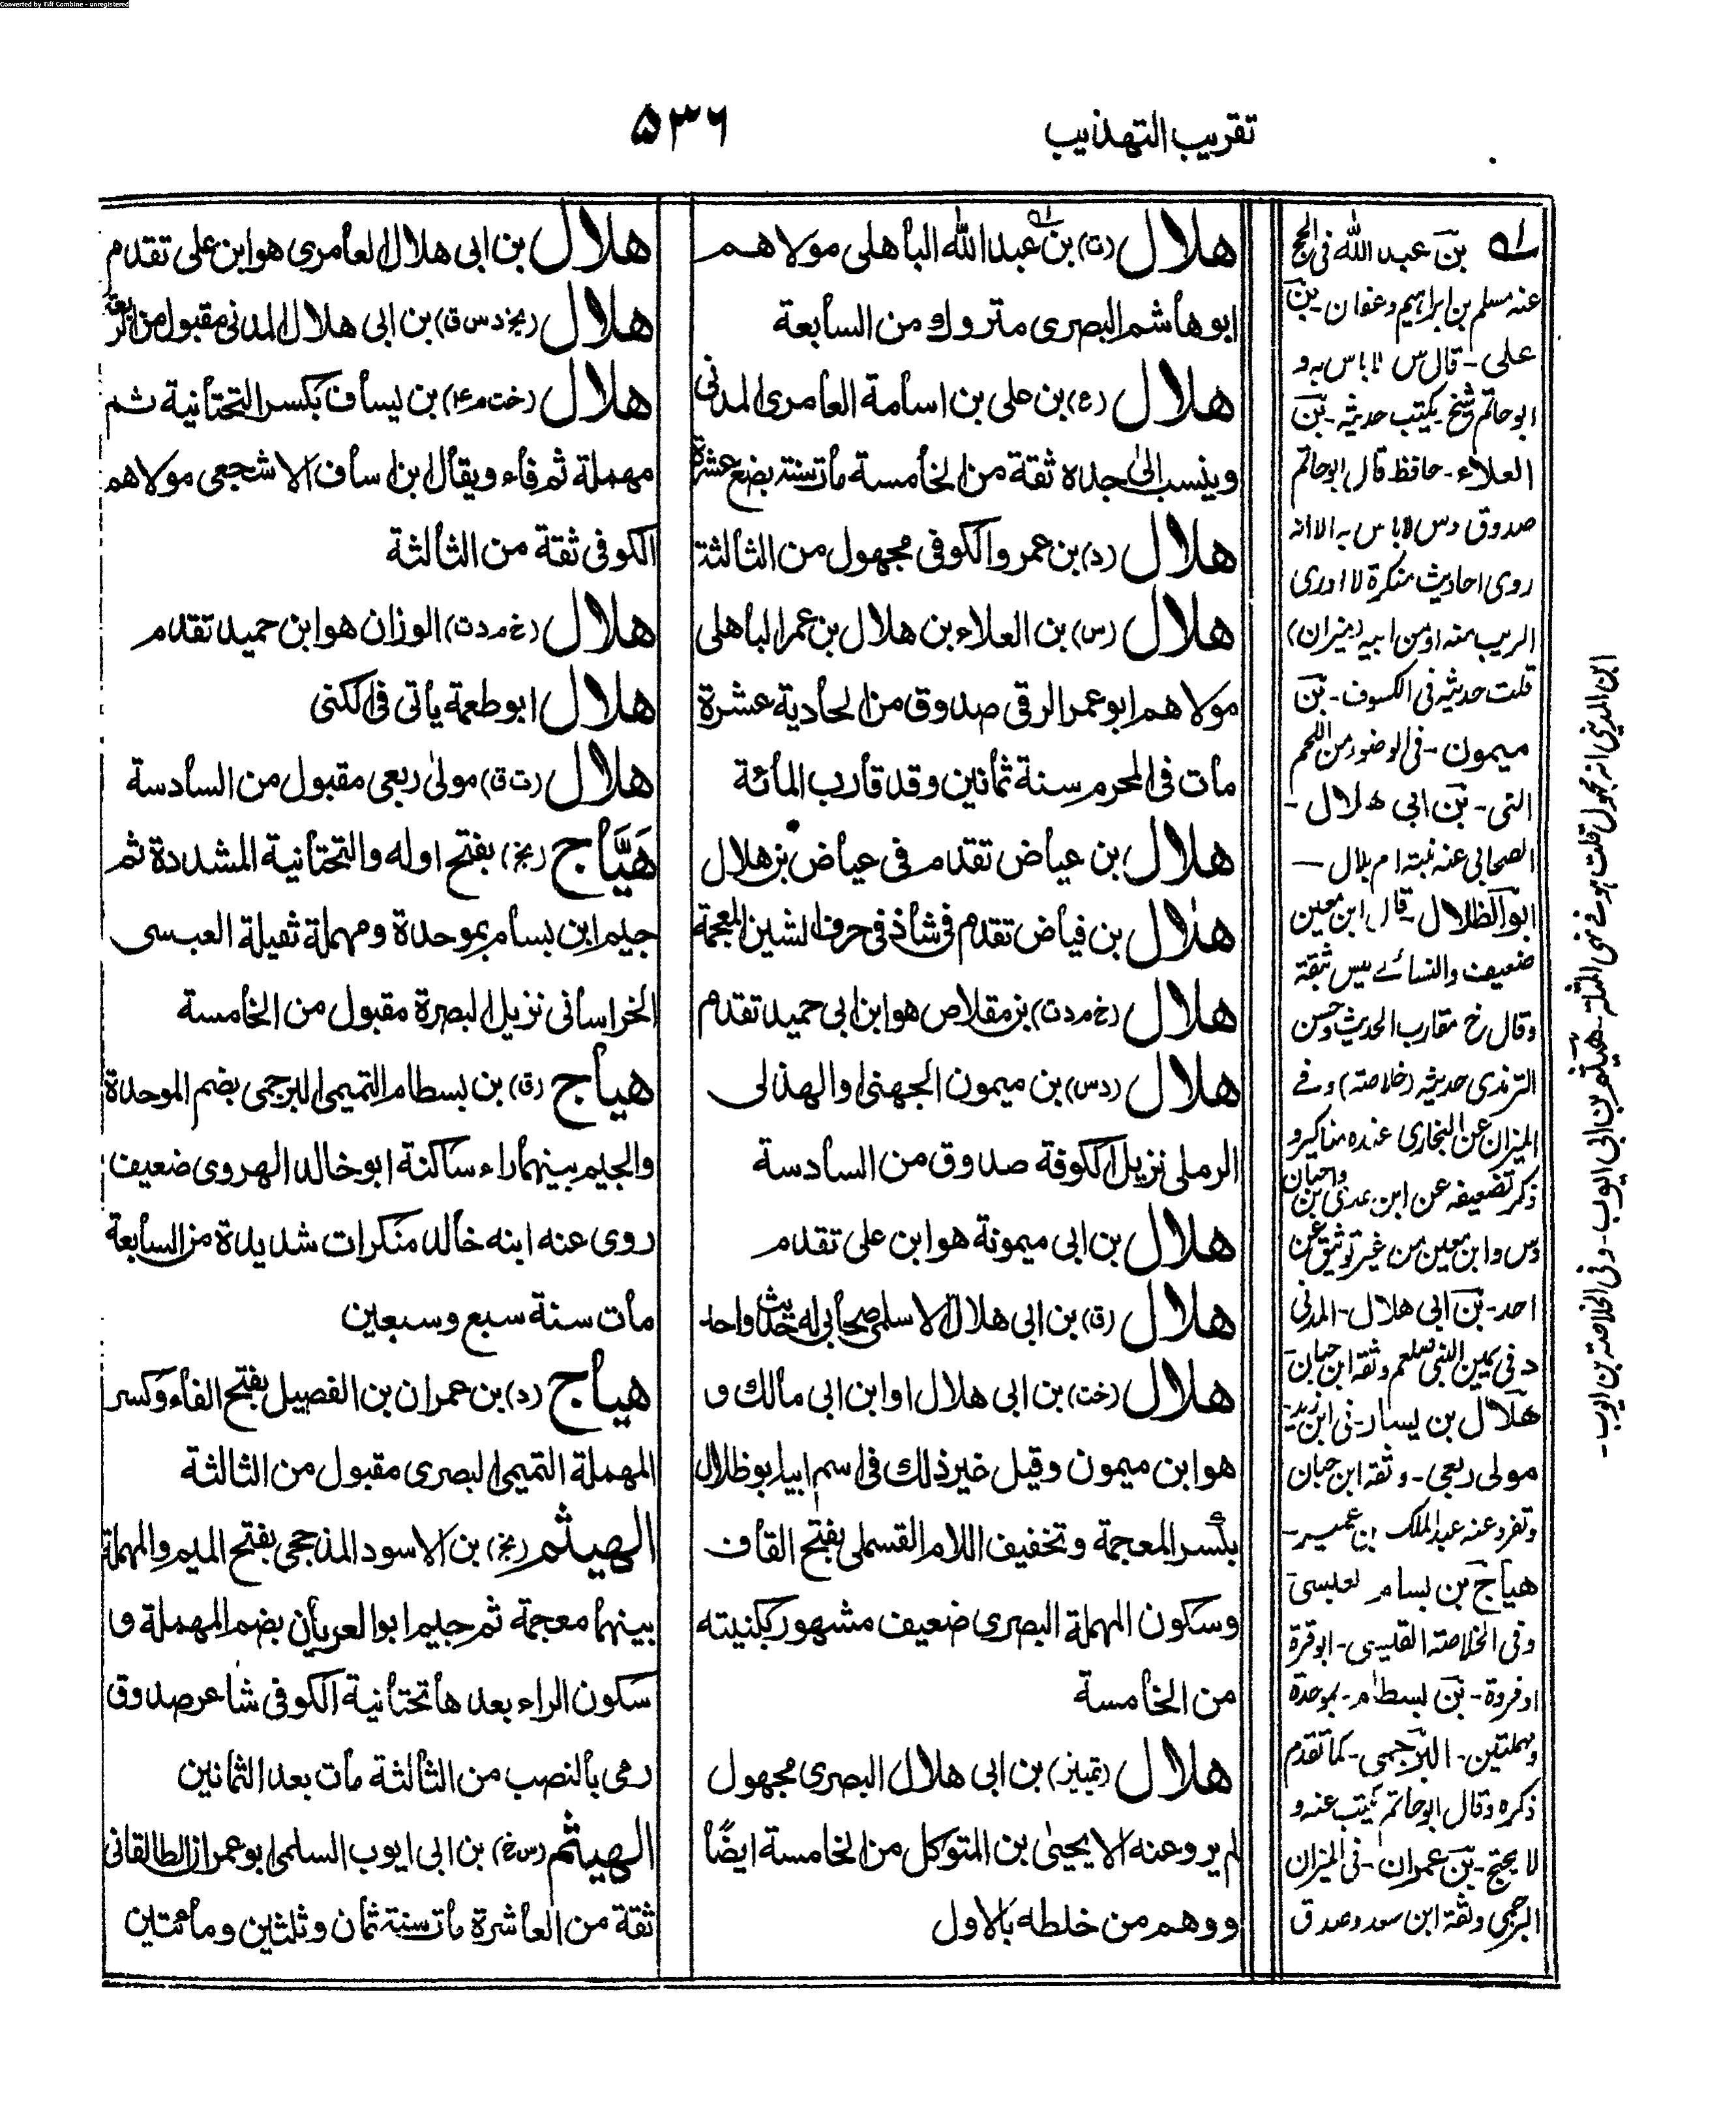 Converted by Tiff Combine - unregistered
تقريب التهذيب
۵۳۶
هلال (ت) بن عبد الله الباهلی مولاهم
ابو هاشم البصری متروك من السابعة
هلال (ع) بن علی بن اسامة العامری المدنی
وینسب الیٰ جده ثقة من الخامسة مات سنة بضع عشرة
هلال (د) بن عمرو الکوفی مجهول من الثالثة
هلال (س) بن العلاء بن هلال بن عمر الباهلی
مولاهم ابو عمر الرقی صدوق من الحادیة عشرة
مات فی المحرم سنة ثمانین وقد قارب المائة
هلال بن عیاض تقدم فی عیاض بن هلال
هلال بن فیاض تقدم فی شاذ فی حرف الشین المعجمة
هلال (خ م د ت) بن مقلاص هو ابن ابی حمید تقدم
هلال (د س) بن میمون الجهنی او الهذلی
الرملی نزیل الکوفة صدوق من السادسة
هلال بن ابی میمونة هو ابن علی تقدم
هلال (ق) بن ابی هلال الاسلمی صحابی له حدیث واحد
هلال (خت) بن ابی هلال او ابن ابی مالك و
هو ابن میمون وقیل غیر ذلك فی اسم ابیه ابو ظلال
بکسر المعجمة وتخفیف اللام القسملی بفتح القاف
وسکون المهملة البصری ضعیف مشهور بکنیته
من الخامسة
هلال (تمییز) بن ابی هلال البصری مجهول
لم یرو عنه الا یحییٰ بن المتوکل من الخامسة ایضًا
ووهم من خلطه بالاول
هلال بن ابی هلال العامری هو ابن علی تقدم
هلال (بخ د س ق) بن ابی هلال المدنی مقبول من الرابعة
هلال (خت م ۴) بن یساف بکسر التحتانیة ثم
مهملة ثم فاء ویقال ابن اساف الاشجعی مولاهم
الکوفی ثقة من الثالثة
هلال (خ م د ت) الوزان هو ابن حمید تقدم
هلال ابو طعمة یأتی فی الکنی
هلال (ت ق) مولیٰ ربعی مقبول من السادسة
هَیَّاج (بخ) بفتح اوله والتحتانیة المشددة ثم
جیم ابن بسام بموحدة ومهملة ثقیلة العبسی
الخراسانی نزیل البصرة مقبول من الخامسة
هیاج (ق) بن بسطام التمیمی البرجمی بضم الموحدة
والجیم بینهما راء ساکنة ابو خالد الهروی ضعیف
روی عنه ابنه خالد منکرات شدیدة من السابعة
مات سنة سبع وسبعین
هیاج (د) بن عمران بن الفصیل بفتح الفاء وکسر
المهملة التمیمی البصری مقبول من الثالثة
الهیثم (بخ) بن الاسود المذحجی بفتح المیم والمهملة
بینهما معجمة ثم جیم ابو العریان بضم المهملة و
سکون الراء بعدها تحتانیة الکوفی شاعر صدوق
رمی بالنصب من الثالثة مات بعد الثمانین
الهیثم (س خ) بن ابی ایوب السلمی ابو عمران الطالقانی
ثقة من العاشرة مات سنة ثمان وثلثین ومائتین
لـه بن عبد الله فی الحج
عنه مسلم بن ابراهیم وعفان - بن
علی - قال س لا باس به و
ابو حاتم شیخ یکتب حدیثه - بن
العلاء - حافظ قال ابو حاتم
صدوق و س لا باس به الا انه
روی احادیث منکرة لا ادری
الریب منه او من ابیه (میزان)
قلت حدیثه فی الکسوف - بن
میمون - فی الوضوء من اللحم
النی - بن ابی هلال -
الصحابی عنه بنته ام بلال -
ابو الظلال - قال ابن معین
ضعیف والنسائے لیس بثقة
وقال خ مقارب الحدیث وحسن
الترندی حدیثه (خلاصة) وفے
المیزان عن البخاری عنده مناکیر و
ذکر تضعیفه عن ابن عدی بن وحبان
و س وابن معین من غیر توثیق عن
احد - بن ابی هلال - المدنی
د فی یمین النبی صلعم وثقه ابن حبان
هلال بن یسار - فی ابن زید -
مولی ربعی - وثقه ابن حبان
وتفرد عنه عبد الملك بن عمیر -
هیاج بن بسام لعبسی
وفی الخلاصة القلیسی - ابو قرة
او فروة - بن بسطام - بموحدة
ومهملتین - البرجمی - کما تقدم
ذکره وقال ابو حاتم یکتب عنه و
لا یحتج - بن عمران - فی المیزان
البرجمی وثقه ابن سعد وصدق
ابن المدینی انه مجهول قلت هو فی نهی المثلة - هیثم بن ابی ایوب - وفی الخلاصة بن ایوب -